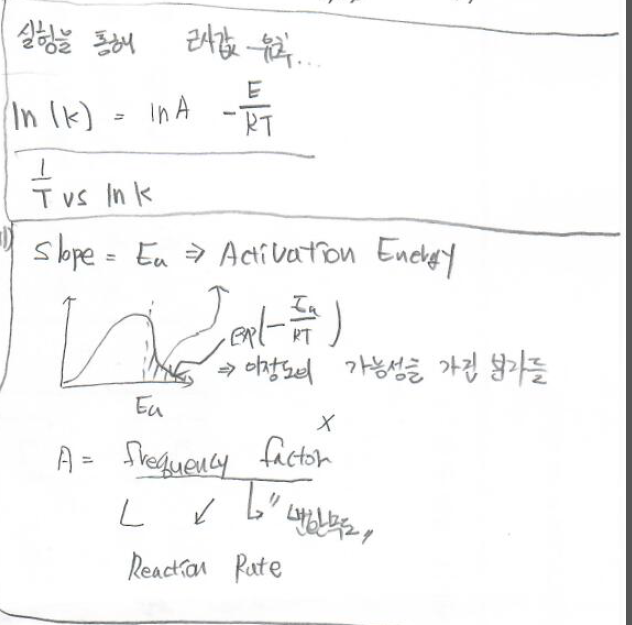 실험을 통해 근사값 유추...
ln (k) = ln A - E/RT
1/T vs ln k
Slope = Ea ⇒ Activation Energy
exp(- Ea/RT)
⇒ 이정도의 가능성을 가진 분자들
Ea
x
A = frequency factor
Reaction Rate